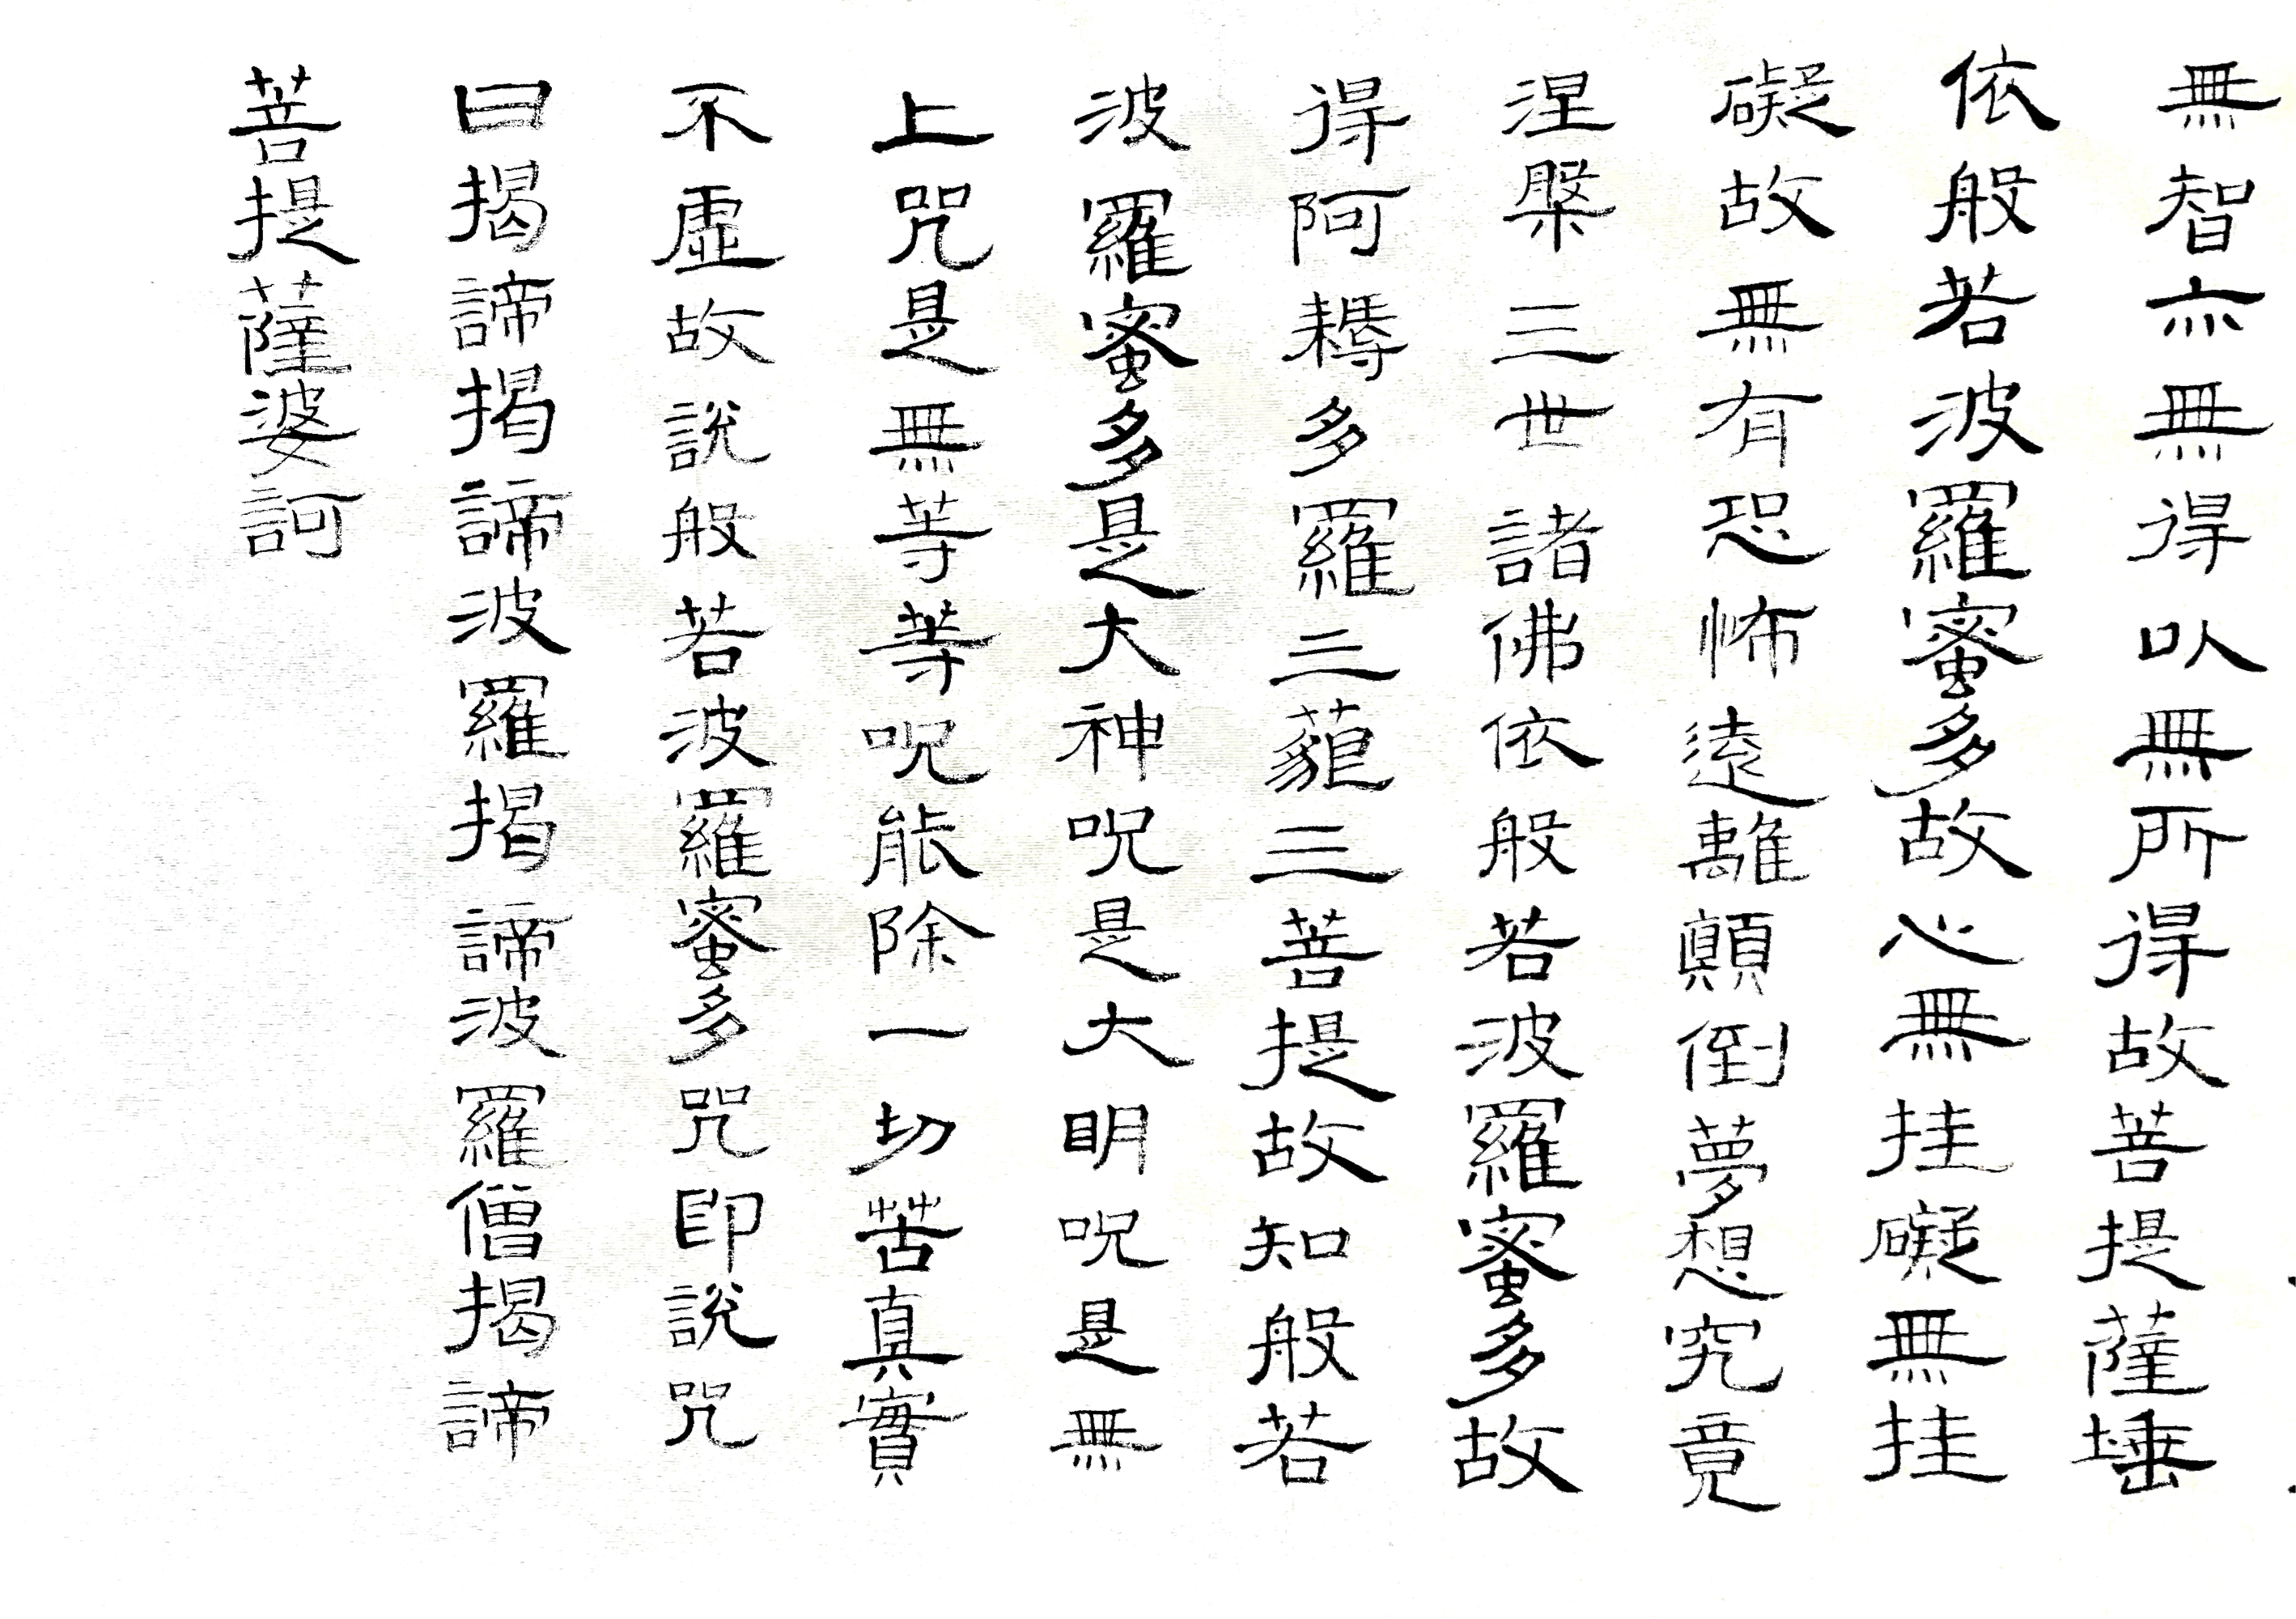 無智亦無得以無所得故菩提薩埵
依般若波羅蜜多故心無挂礙無挂
礙故無有恐怖遠離顛倒夢想究竟
涅槃三世諸佛依般若波羅蜜多故
得阿耨多羅三藐三菩提故知般若
波羅蜜多是大神呪是大明呪是無
上咒是無等等呪能除一切苦真實
不虛故說般若波羅蜜多咒即說咒
曰揭諦揭諦波羅揭諦波羅僧揭諦
菩提薩婆訶